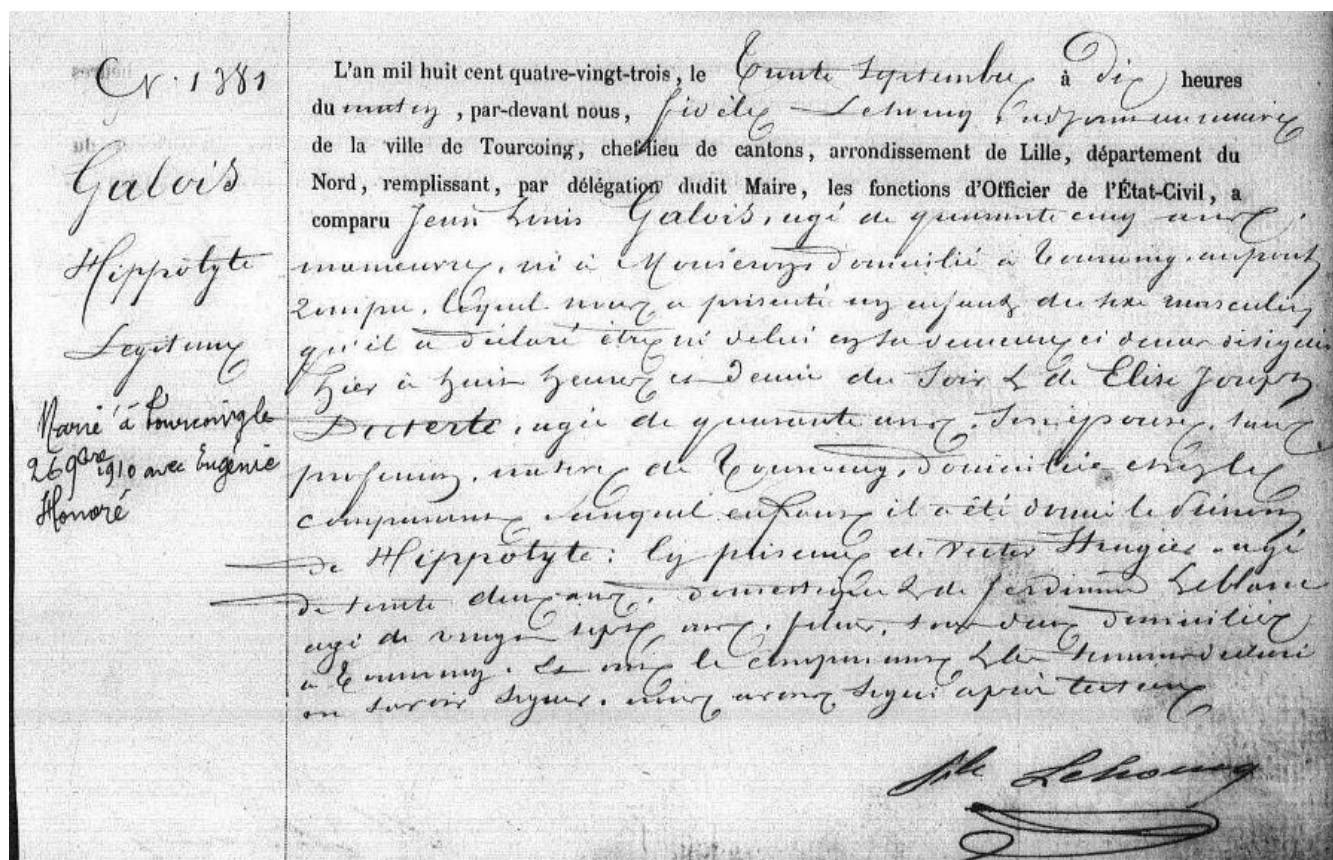 N. 1381
Galois
Hippolyte
Legitime
Marié à Tourcoing le
26 9bre 1910 avec Eugénie
Honoré
L'an mil huit cent quatre-vingt-trois, le Trente Septembre à dix heures
du matin, par-devant nous, fidèle Lehoucq, adjoint au maire
de la ville de Tourcoing, chef-lieu de cantons, arrondissement de Lille, département du
Nord, remplissant, par délégation dudit Maire, les fonctions d'Officier de l'État-Civil, a
comparu Jean Louis Galois, agé de quarante cinq ans,
manœuvre, né à Mouscron, domicilié à Tourcoing, au pont
rompu, lequel nous a présenté un enfant du sexe masculin
qu'il a déclaré être né de lui en sa demeure ci dessus désignée
hier à huit heures et demie du soir & de Elise Joseph
agée de quarante ans, son épouse, sans
profession, native de Tourcoing, domiciliée chez le
comparant, auquel enfant il a été donné le prénom
de Hippolyte: En présence de Victor agé
de trente deux ans, domestique & de Ferdinand Leblanc
agé de vingt sept ans, fileur, tous deux domiciliés
à Tourcoing. Et ont le comparant & les témoins déclaré
ne savoir signer, nous avons signé après lecture
file Lehoucq